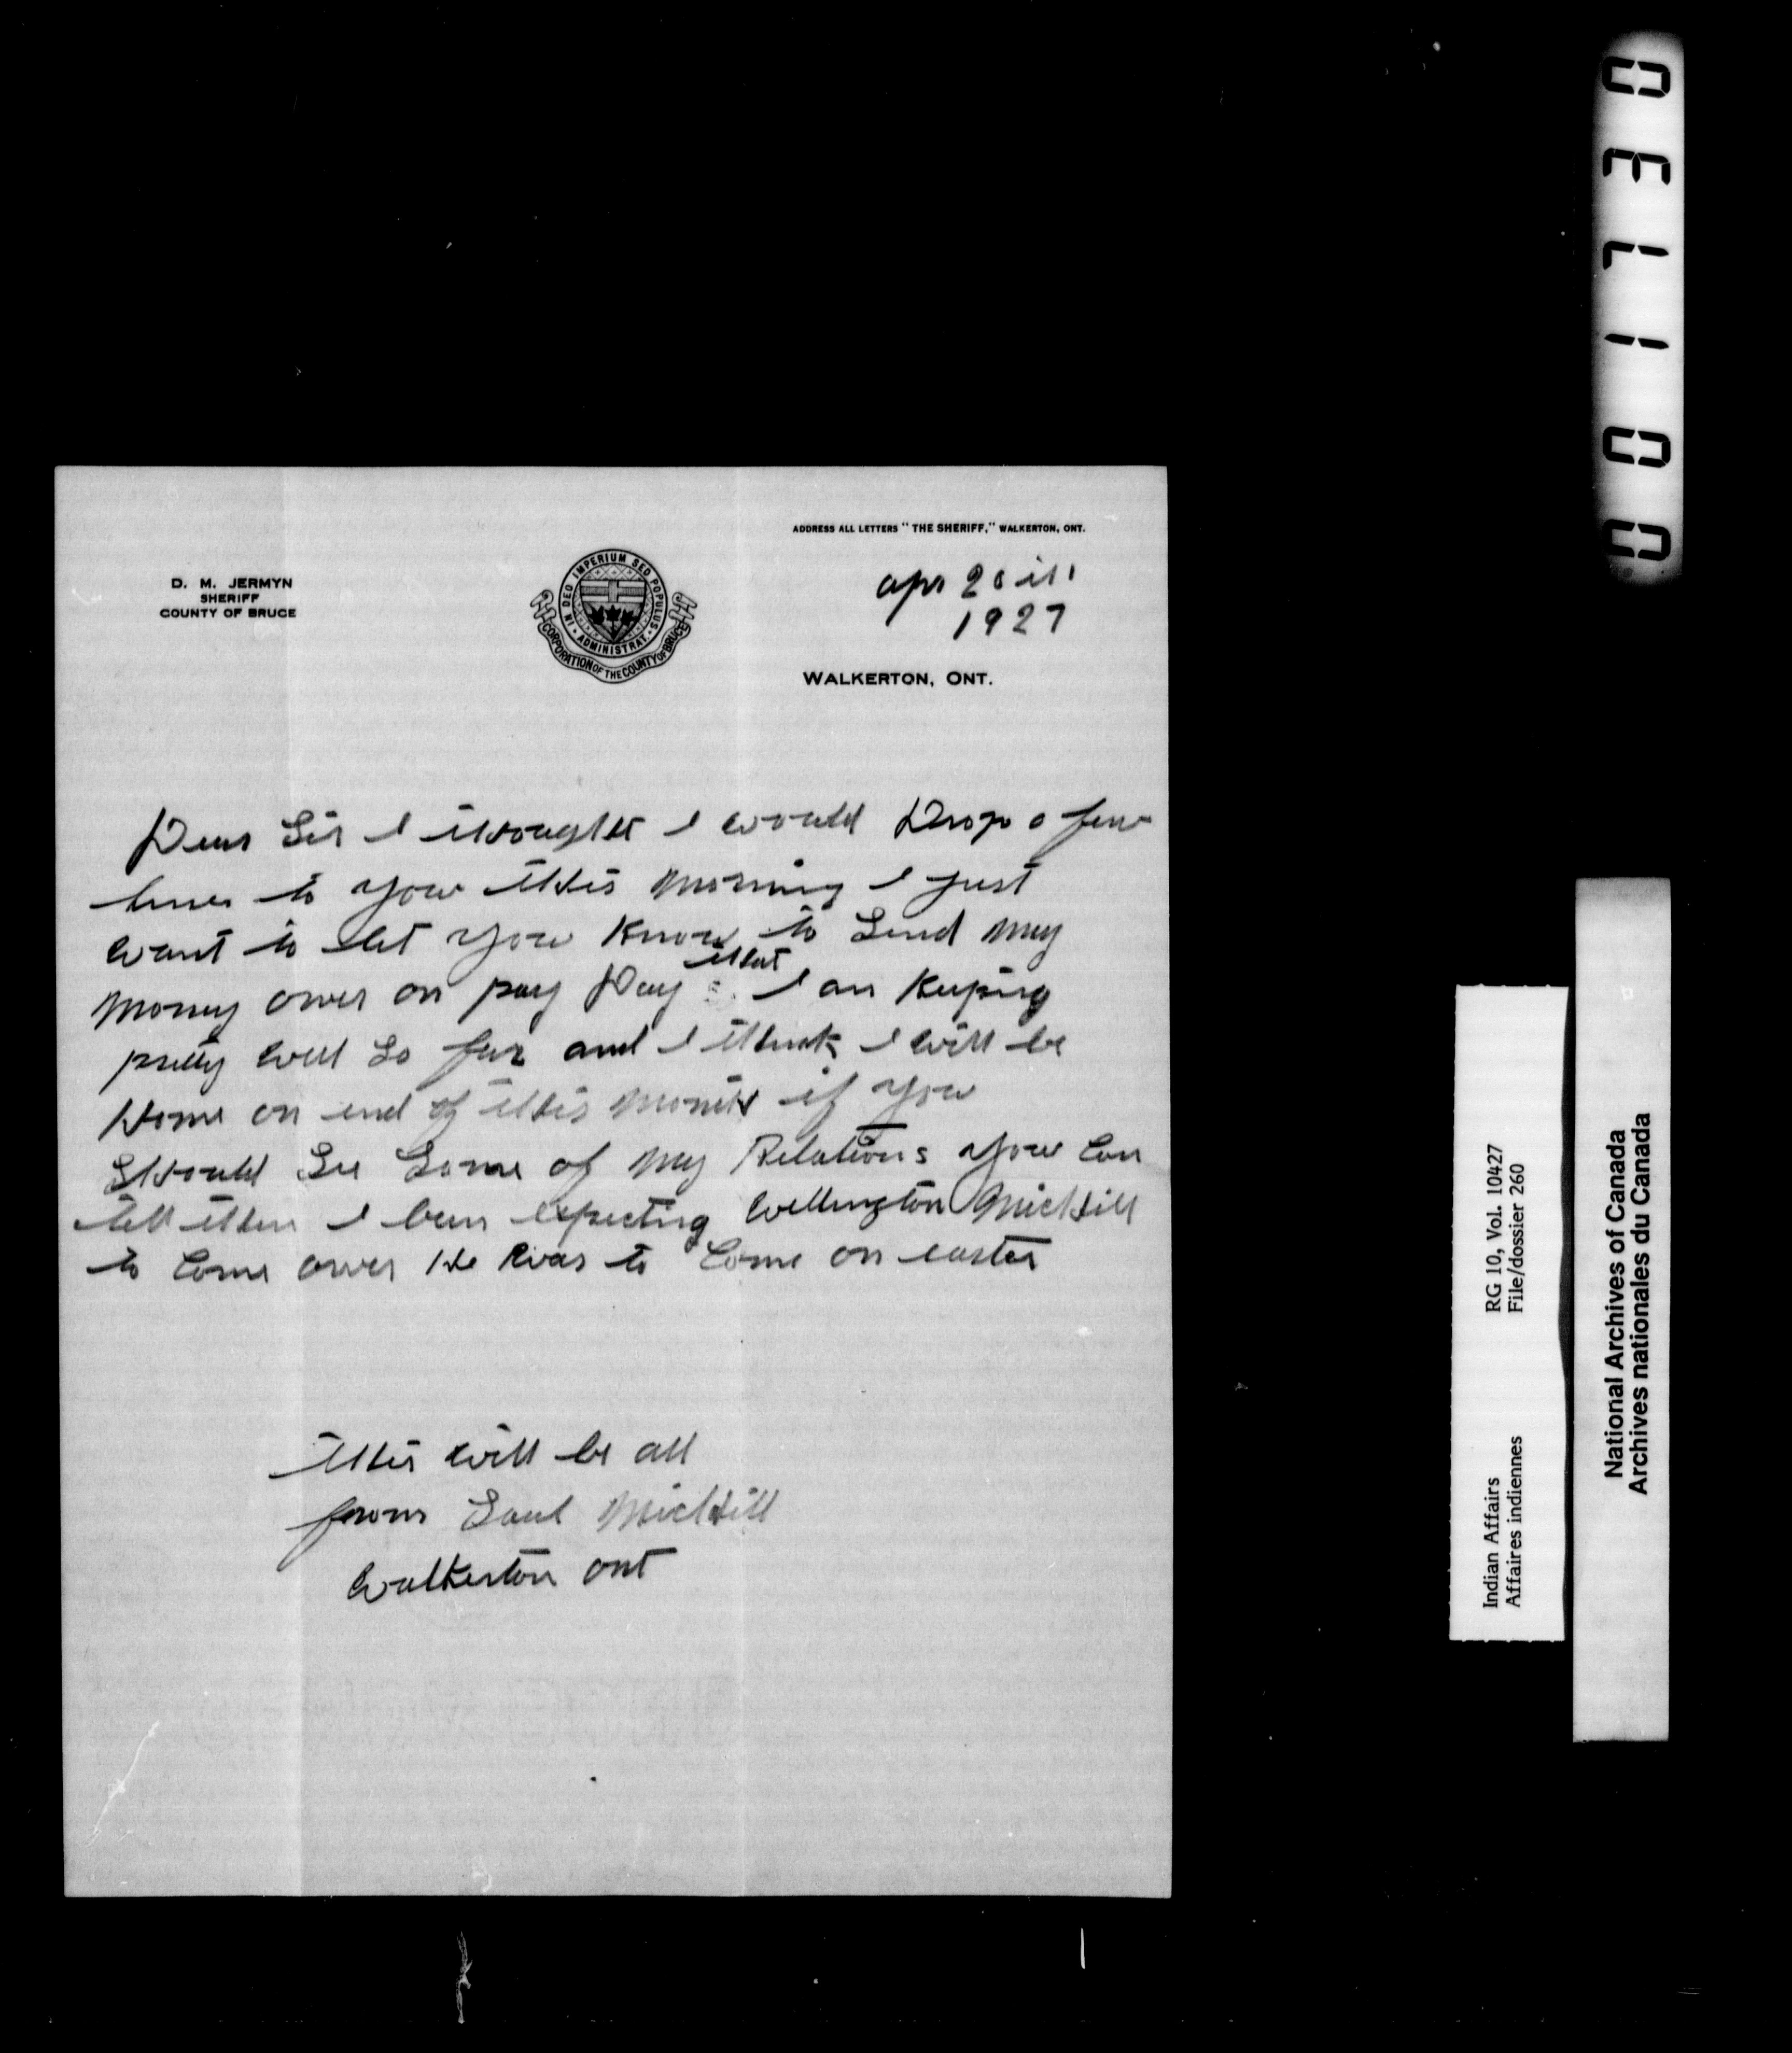 ADDRESS ALL LETTERS "THE SHERIFF," WALKERTON, ONT.
D. M. JERMYN
SHERIFF
COUNTY OF BRUCE
IN DEO IMPERIUM SED POPULUS ADMINISTRAT
CORPORATION OF THE COUNTY OF BRUCE
apr
1927
WALKERTON, ONT.
Dear Sir I thought I would Drop a few
lines to you this morning I just
want to let you Know to Send my
money over on pay Day that I am Keeping
pretty well So far and I think I will be
Home on end of this month if you
Should See Some of my Relations you Can
tell them I been expecting Wellington McHill
to Come over He was to Come on easter
this will be all
from Saul McHill
Walkerton ont
001730
Indian Affairs RG 10, Vol. 10427
Affaires indiennes File/dossier 260
National Archives of Canada
Archives nationales du Canada